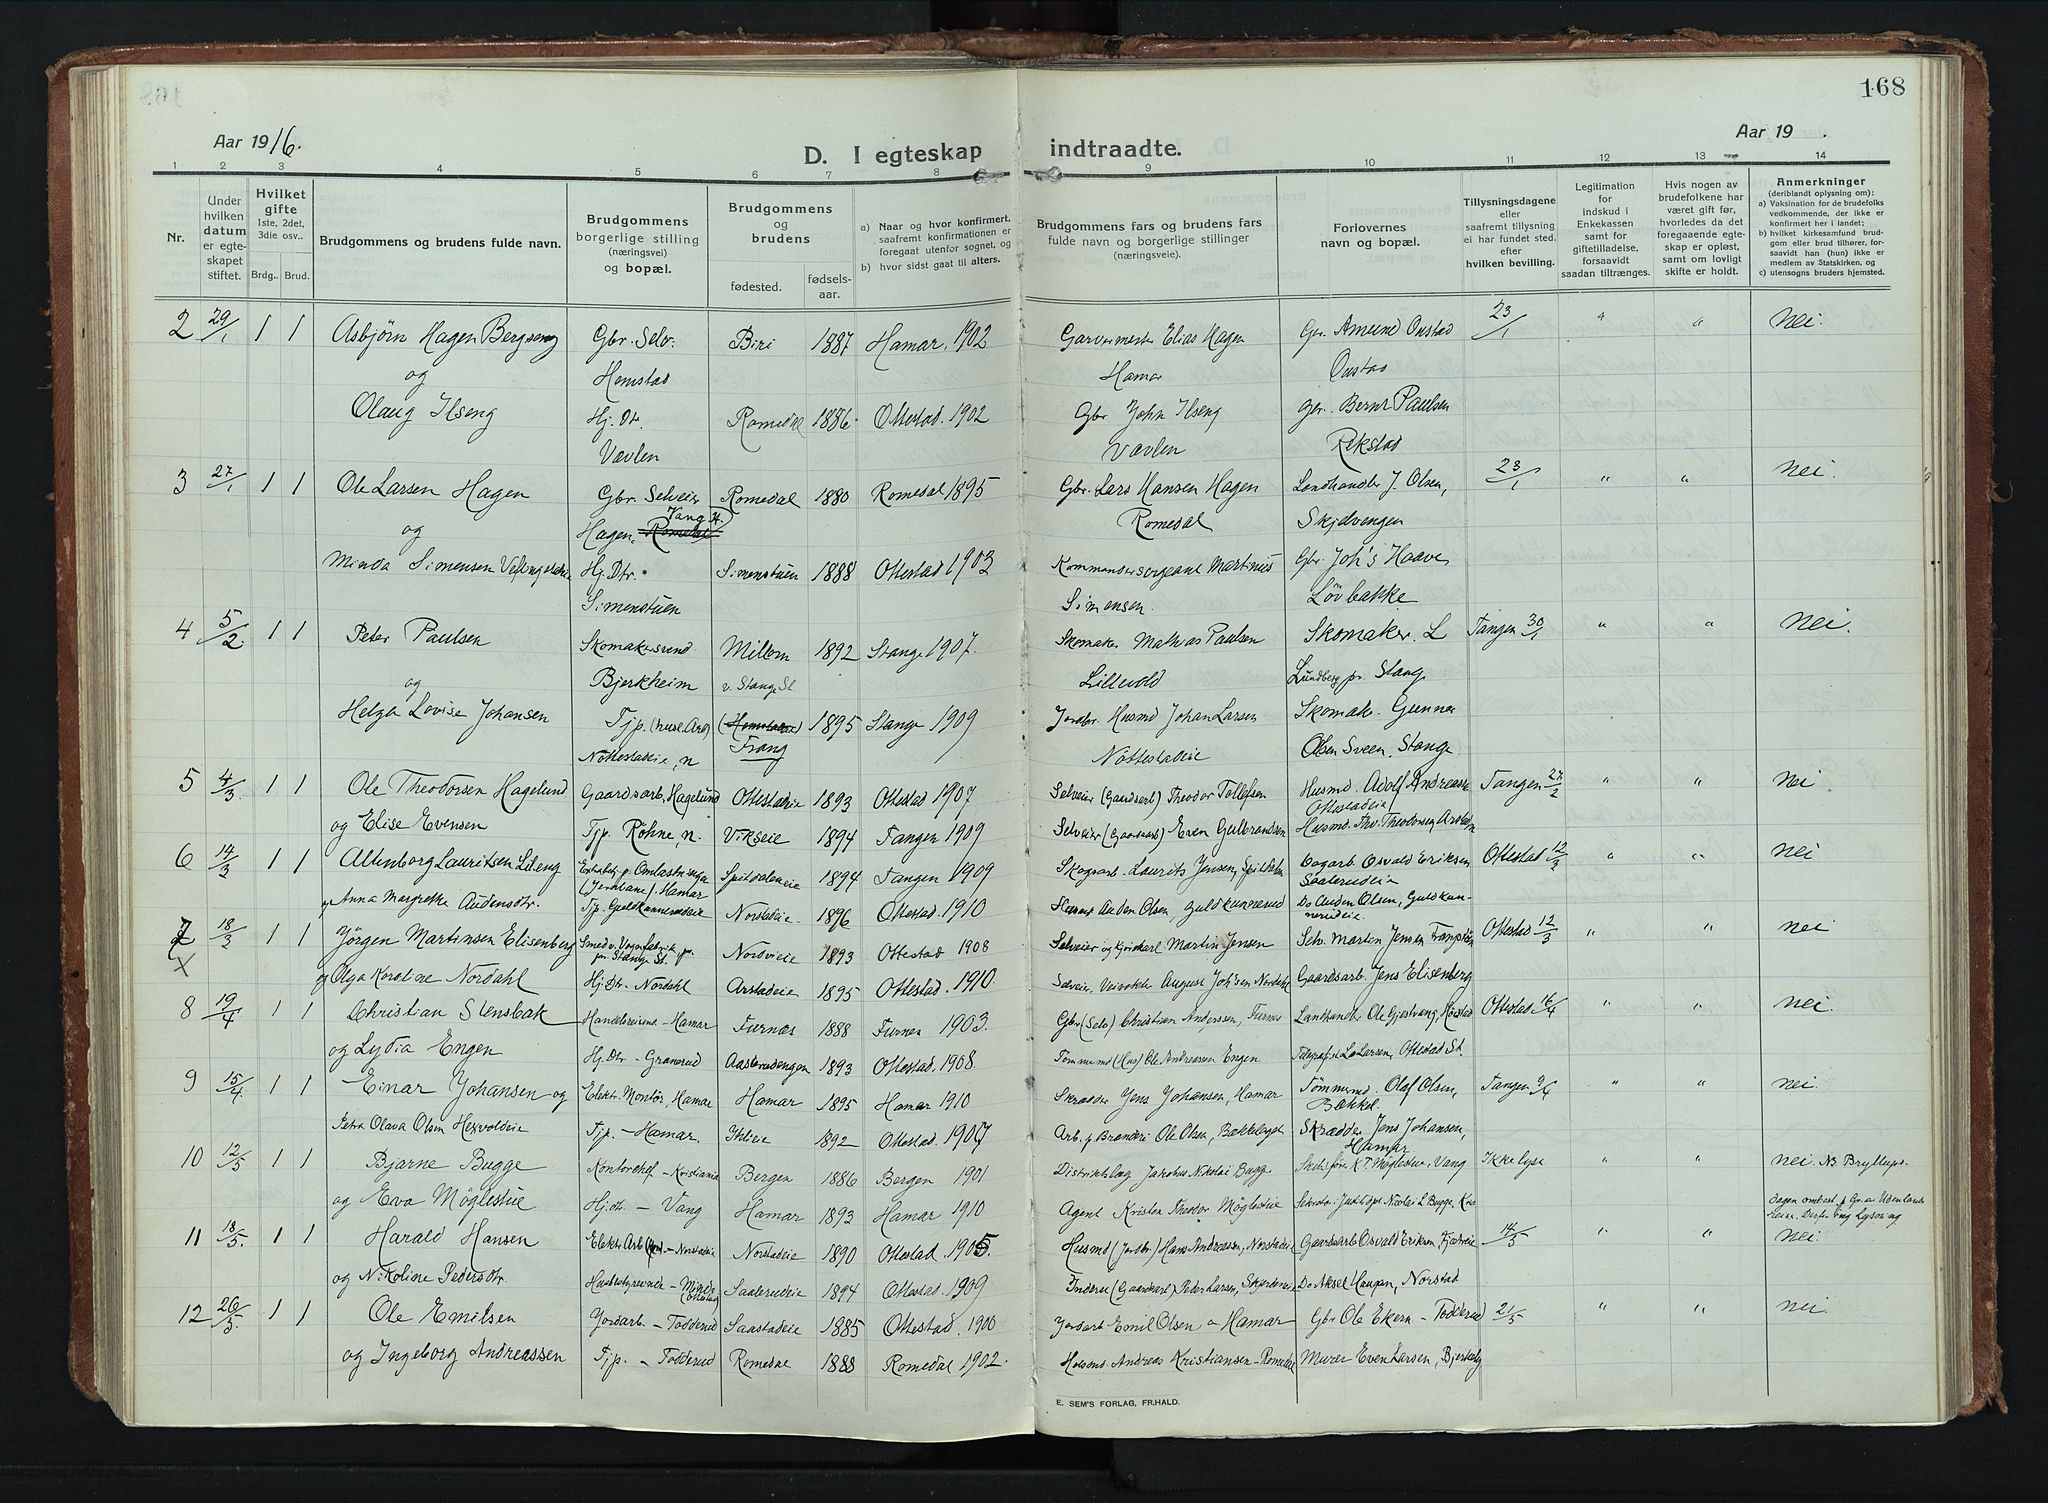 168
Aar 1916.
Aar 19 .
D. I egteskap indtraadte.
1 2 3 4 5 6 7 8 9 10 11 12 13 14
Nr.
Under hvilken datum er egteskapet stiftet.
Hvilket gifte 1ste, 2det, 3die osv..
Brdg.. Brud.
Brudgommens og brudens fulde navn.
Brudgommens borgerlige stilling (næringsvei) og bopæl.
Brudgommens og brudens
fødested. fødsels-aar.
a) Naar og hvor konfirmert, saafremt konfirmationen er foregaat utenfor sognet, og
b) hvor sidst gaat til alters.
Brudgommens fars og brudens fars fulde navn og borgerlige stillinger (næringsveie).
Forlovernes navn og bopæl.
Tillysningsdagene eller saafremt tillysning ei har fundet sted. efter hvilken bevilling.
Legitimation for indskud i Enkekassen samt for giftetilladelse, forsaavidt saadan tiltrænges.
Hvis nogen av brudefolkene har været gift før, hvorledes da det foregaaende egteskap er opløst, samt om lovligt skifte er holdt.
Anmerkninger (deriblandt oplysning om): a) Vaksination for de brudefolks vedkommende, der ikke er konfirmert her i landet; b) hvilket kirkesamfund brudgom eller brud tilhører, forsaavidt han (hun) ikke er medlem av Statskirken, og c) utensogns bruders hjemsted.
2 29/1 1 1 Asbjörn Hagen Bergseng Gbr. Selv. Biri 1887 Hamar. 1902 Garvermester Elias Hagen Gbr. Amund Onstad 23/1 " " Nei.
og Hemstad Hamar Onstad
Olaug Ilseng Hj. Dtr. Romedal 1886. Ottestad. 1902 Gbr John Ilseng Gbr. Bernt Paulsen
Vævlen Vævlen Rekstad
3 27/1 1 1 Ole Larsen Hagen Gbr. Selveier Romedal 1880 Romedal 1895 Gbr. Lars Hansen Hagen Landhandler J. Olsen, 23/1 " " nei.
og Hagen, Romedal Vang H. Romedal Skjelvengen
Minda Simensen Hj. Dtr. Simenstuen 1888 Ottestad 1903 Kommandersergeant Martinus Gbr. Joh's Haave
Simenstuen Simensen. Lövbakke
4 5/2 1 1 Peter Paulsen Skomakersvend Millom 1892 Stange 1907. Skomaker Mathias Paulsen Skomaker. L Tangen 30/1 " " Nei.
og Bjerkheim v. Stange St. Lillevold Lundberg pr Stange
Helga Lovise Johansen Tjp. (huse. Arb) (Hemstadeie) 1895 Stange 1909 Jordbr. Husmd Johan Larsen Skomak. Gunner
Nöttestadeie, n Frang Nöttestadeie Olsen Sveen, Stange
5 4/3. 1 1 Ole Theodorsen Hagelund Gaardsarb. Hagelund Ottestadeie 1893 Ottestad 1907 Selveier (Gaardsarb) Theodor Tollefsen Husmd. Adolf Andreassen Tangen 27/2 " " nei
Ottestadeie
og Elise Evensen Tjp. Röhne, n. Vikseie 1894 Tangen 1909 Selveier (Gaardsarb) Even Gulbrandsen Husmd. Thv. Theodorsen
6 14/3 1 1 Altenborg Lauritsen Lileng 1894 Tangen 1909 Skogsarb. Laurits Jensen, Osvald Eriksen Ottestad 12/3 " " nei
(Jernbane). Hamar Saaterudeie
og Anna Margrethe Audensdtr. Tjp. Guldkunnerudeie Nordstadeie 1896 Ottestad 1910 Husmd Auden Olsen, Guldkunnerud Do Auden Olsen, Guldkunnerudeie.
7 18/3 1 1 Jörgen Martinsen Elisenberg Smed v. Vognfabrik pr. Stange St. Nordvieie 1893 Ottestad 1908 Selveier Martin Jensen Selv. Martin Jensen Ottestad 12/3 " " nei
X og Olga Karoline Nordahl Hj. Dtr. Nordahl Arstadeie 1895 Ottestad. 1910. Selveier, Veivokter August Joh'sen Nordahl Gaardsarb. Jens Elisenberg
8 19/4 1 1 Christian Stensbak Handelsreisende - Hamar Furnes 1888 Furnes 1903. Gbr. (Selv) Christian Anderssen, Furnes Landhandler Ole Gjestvang, Ottestad 16/4 " " nei.
og Lydia Engen Hj. Dtr. - Granerud Aasterudengen 1893 Ottestad. 1908. Tømmermd (Hus) Ole Andreassen Engen Telegrafist L. Larsen, Ottestad St.
9 15/4 1 1 Einar Johansen og Elektr. Montör, Hamar Hamar 1895 Hamar 1910 Skrædder Jens Johansen, Hamar Tömmermd. Olaf Olsen, Tangen 9/4 " " nei
Bækkel.
Petra Olava Olsen Hervoldeie Tjp. - Hamar. 1892 Ottestad. 1907 Arb. p Brænderi Ole Olsen, Skrædder Jens Johansen, Hamar
10 12/5 1 1 Bjarne Bugge Kontorchef - Kristiania Bergen 1886 Bergen 1901 Distriktslæg Jacobus Nikolai Bugge K. T. Møglestue, Vang Ikke lyst " " nei. Nb Bryllups-
og Eva Møglestue Hj. dtr. - Vang Hamar 1893 Hamar 1910 Agent Kristen Theodor Møglestue Nicolai L Bugge, Kra dagen ombest. p Gr. a Udenlands-
reise. Derfor ing Lysning
11 18/5. 1 1 Harald Hansen Elektr. Arb - Norstadeie Norstadeie 1890 Ottestad 1905. Husmd (Jordbr) Hans Andreassen, Norstadeie Gaardsarb Osvald Eriksen, 14/5 " " nei.
og Nikoline Pedersdtr. Husbestyrerinde - Ottestad Saaterudeie 1894 Ottestad 1909 Inderst (Gaardsarb) Peter Larsen, Do Aksel Haugan, Norstad
12 26/5 1 1 Ole Emilsen Jordarb. - Todderud Saastadeie 1885 Ottestad. 1900 Jordarb Emil Olsen - Hamar Gbr Ole Ekern - Todderud 21/5 " " nei.
og Ingeborg Andreassen Tjp. - Todderud Romedal 1888 Romedal 1902. Husmd. Andreas Kristiansen - Romedal Murer Even Larsen,
E. SEM'S FORLAG, FR.HALD.